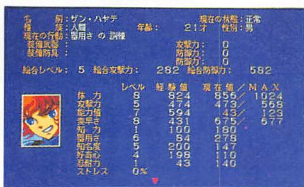 名 前：ザン・ハヤテ 現在の状態：正常
種 族：人間 年齢： 21才 性別： 男
現在の行動：器用さ の 訓練
装備武器： 攻撃力： 0
装備防具： 防御力： 0
防御力： 0
総合レベル： 5 総合攻撃力： 282 総合防御力： 582
レベル 経 験 値 現 在 値 ／ M A X
体 力 8 824 856／1024
攻撃力 5 474 473／ 568
能力値 7 594 43／ 123
素早さ 8 431 675／ 677
知 力 1 100 180
器用さ 6 84 28
知名度 5 200 147
好奇心 4 198 110
忍耐力 1 43 140
ストレス 0%